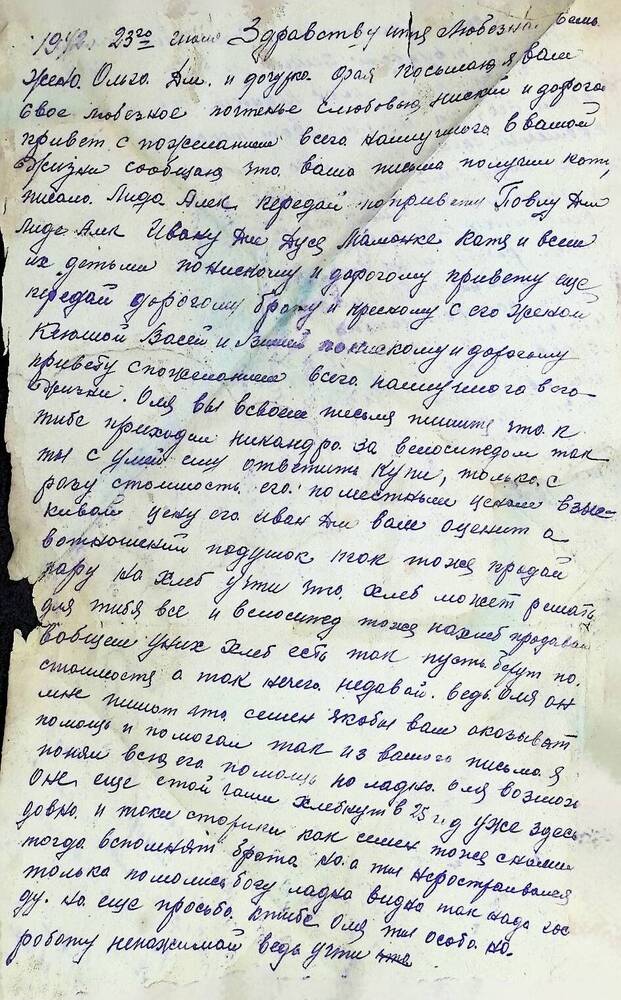 1942 23го июля Здравствуйтя Любезная семь
Жена Ольга Дм. и дочурка Фая посылаю я вам
свое любезное почтенье слюбовью ниский и дорогой
привет с пожеланием всего наилучшого в вашой
жизни сообщаю что ваша письма получил кото,
писала Лида Алек передай по привету Повлу Дм
Лиде Алек Ивану Дм Дуся Маманке Катя и всем
их детьми понискому и дорогому привету еще
передай дорогому брату и крескому с его женой
Ксюшой Васей и Витей понискому и дорогому
привету споженанием всего наилучшого всго
жизни. Оля вы всвоем письмя пишите что к
тибе приходил никандра за велосипедом так
ты с умей ему ответить купи, только с
разу стоимость его поместным ценам взыс-
кивай цену его Иван Дм вам оценит а
вотношений подушок так тоже продай
пару на хлеб учти что хлеб может решать
для тибя все и велосипед тоже нахлеб продавай
вобщем уних хлеб есть так пусть берут по
стоимостя а так нечего недавай. ведь Оля он
мне пишот что семен якобы вам оказыват
помощь и помогал так из вашого письма я
понял всю его помощь но ладно Оля возмож
Оне еще етой гаши хлебнут в 25 г.д уже здесь
довно и токи сторики как семен тоже снами
тогда вспомнят брата но а ты неростраивайся
только помолись богу ладна видно так нада гос
ду. на еще просьба ктибе Оля ты особо на
роботу ненажимай ведь учти что